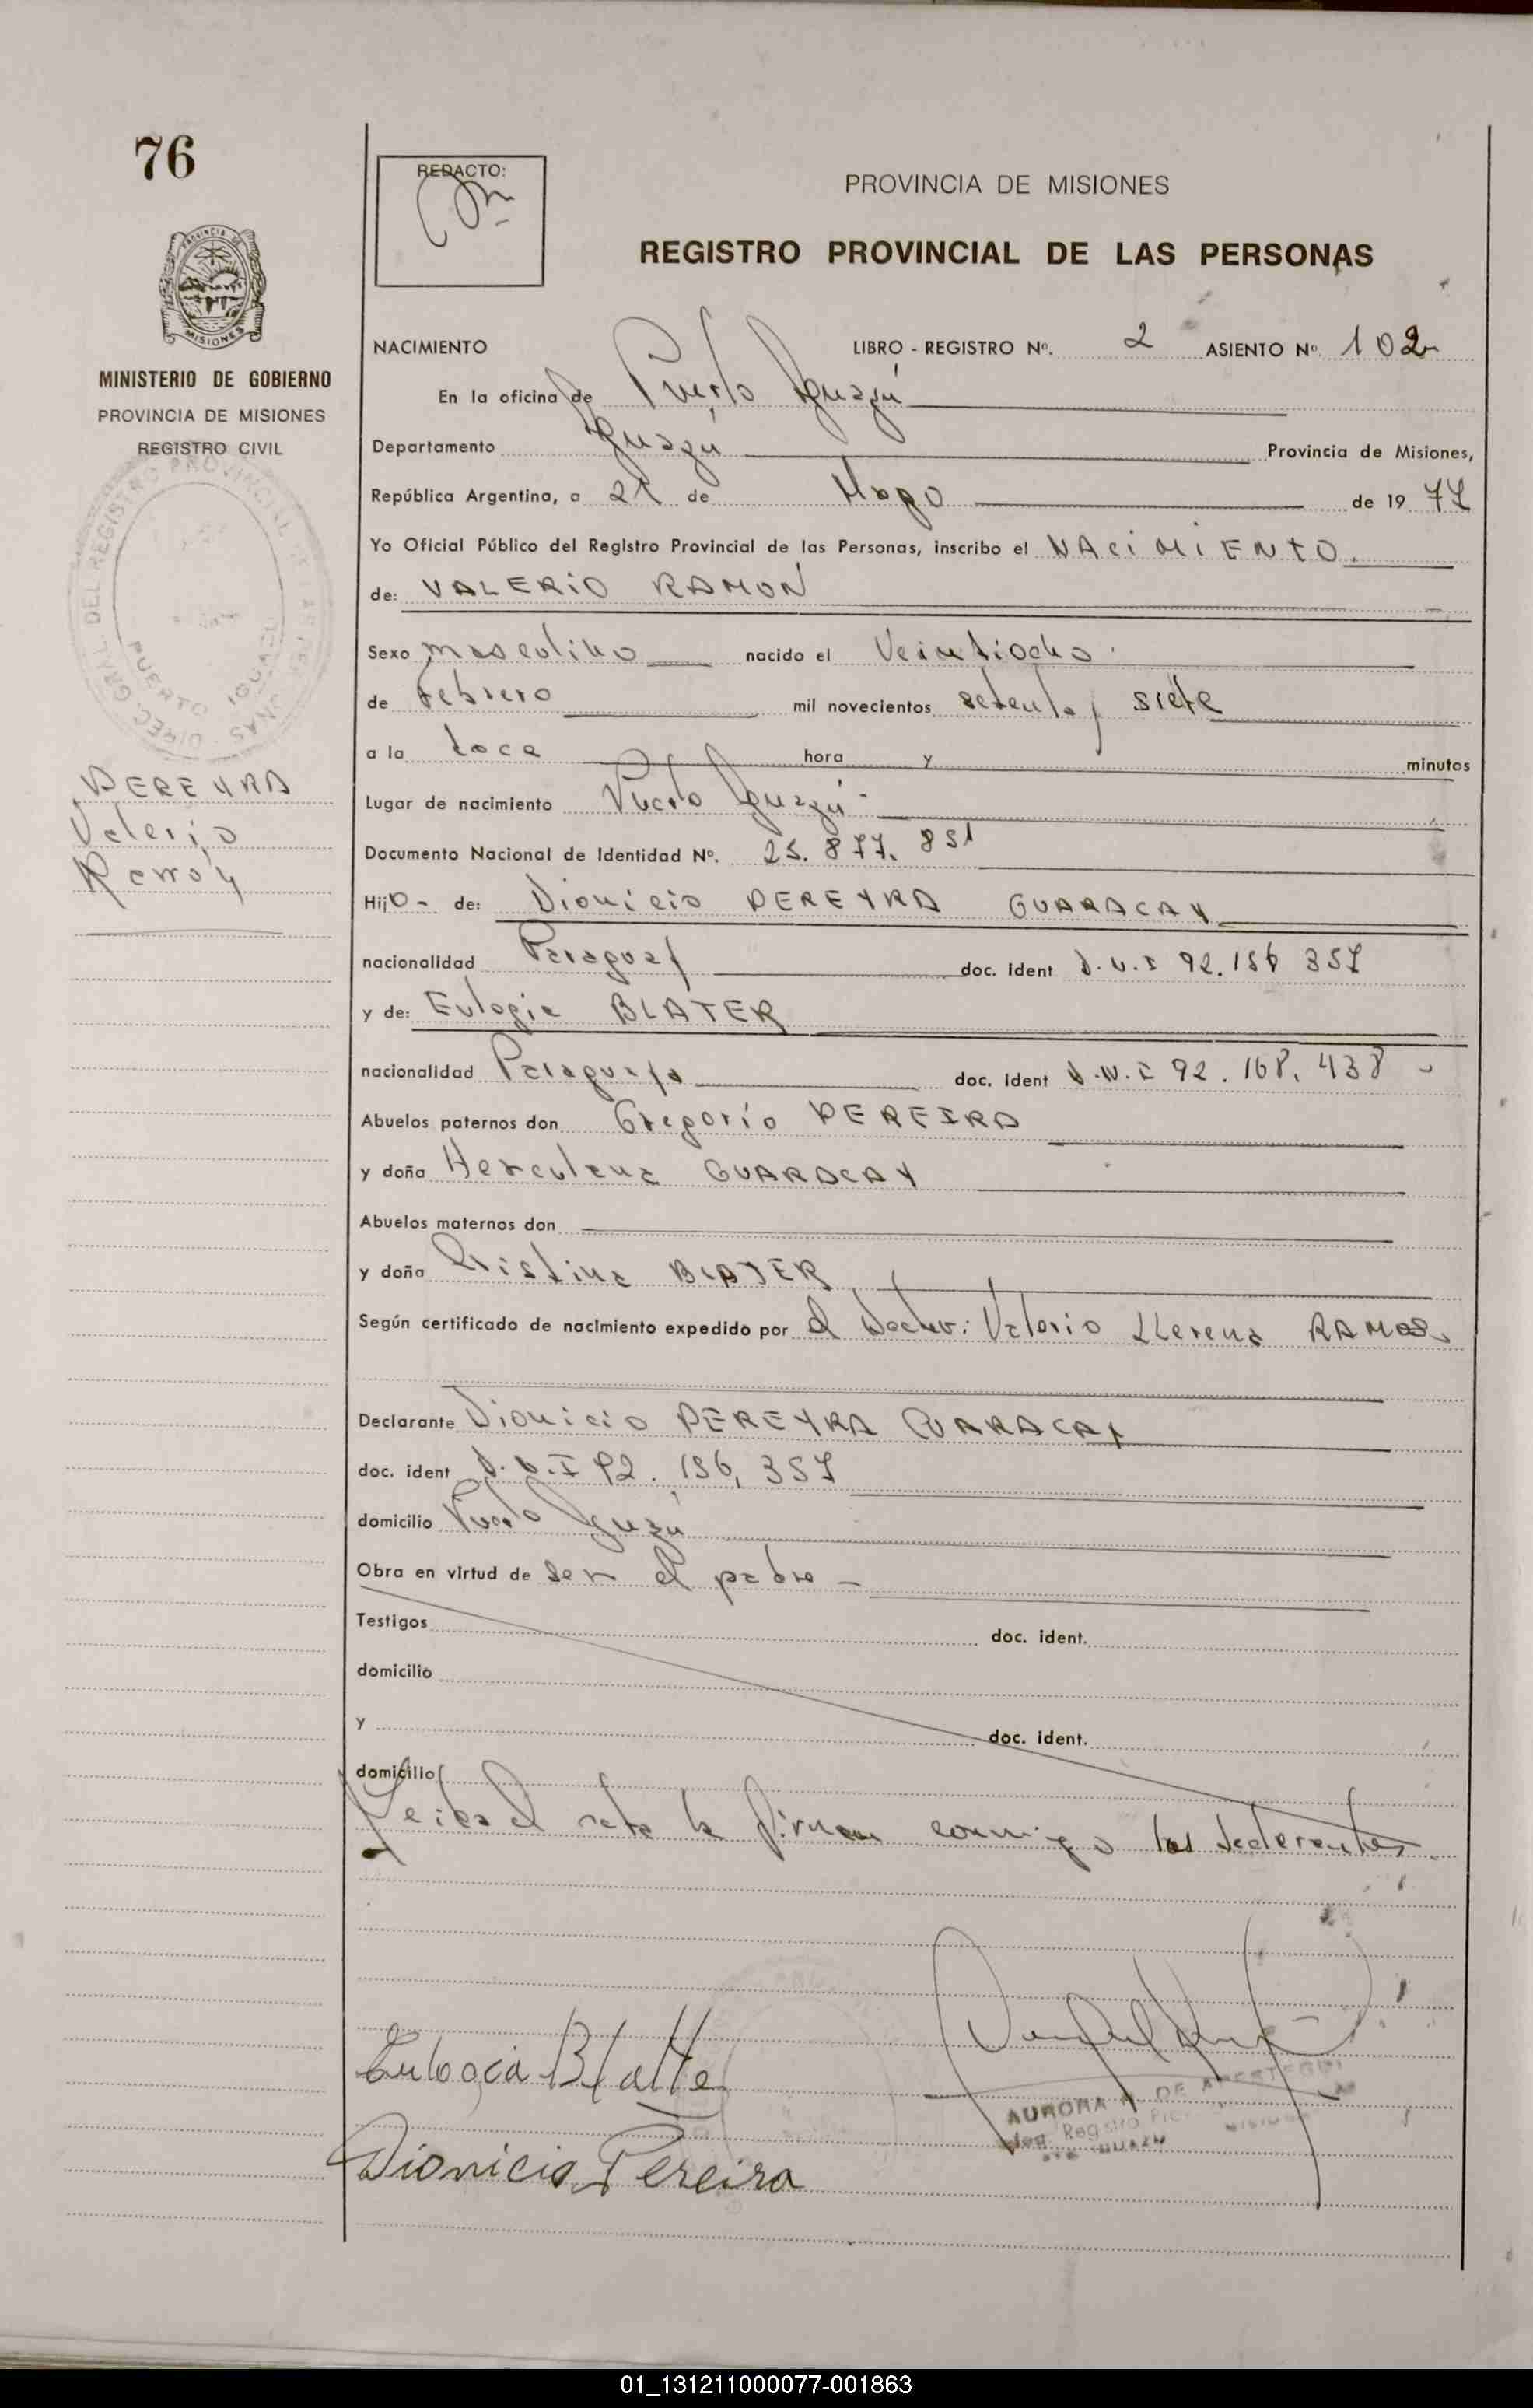 76
REDACTO:
PROVINCIA DE MISIONES
REGISTRO PROVINCIAL DE LAS PERSONAS
MISIONES
MINISTERIO DE GOBIERNO
PROVINCIA DE MISIONES
REGISTRO CIVIL
NACIMIENTO LIBRO - REGISTRO Nº. 2 ASIENTO Nº 102
En la oficina de Puerto Iguazú
Departamento Iguazú Provincia de Misiones,
República Argentina, a 21 de Mayo de 1977
Yo Oficial Público del Registro Provincial de las Personas, inscribo el NACIMIENTO.
de: VALERIO RAMON
Sexo masculino nacido el Veintiocho
de Febrero mil novecientos setenta y siete
a la doce hora y minutos
Lugar de nacimiento Puerto Iguazú
Documento Nacional de Identidad Nº. 25.877.851
Hijo - de: Dionicio PEREYRA GUARACAY
nacionalidad Paraguay doc. ident D.N.I 92.156 357
y de: Eulogia BLATER
nacionalidad Paraguaya doc. Ident D.N.I 92.168.438 -
Abuelos paternos don Gregorio PEREIRA
y doña Herculana GUARACAY
Abuelos maternos don
y doña Cristina BLATER
Según certificado de nacimiento expedido por el Doctor: Valerio Llerena RAMOS
Declarante Dionicio PEREYRA GUARACAY
doc. ident D.N.I 92.156.357
domicilio Puerto Iguazú
Obra en virtud de ser el padre -
Testigos doc. ident.
domicilio
y doc. ident.
domicilio
Leida el acta la firman conmigo los declarantes.
PEREYRA
Valerio
Ramón
Eulogia Blatte
Dionicio Pereira
AURORA
PUERTO IGUAZU
01_131211000077-001863